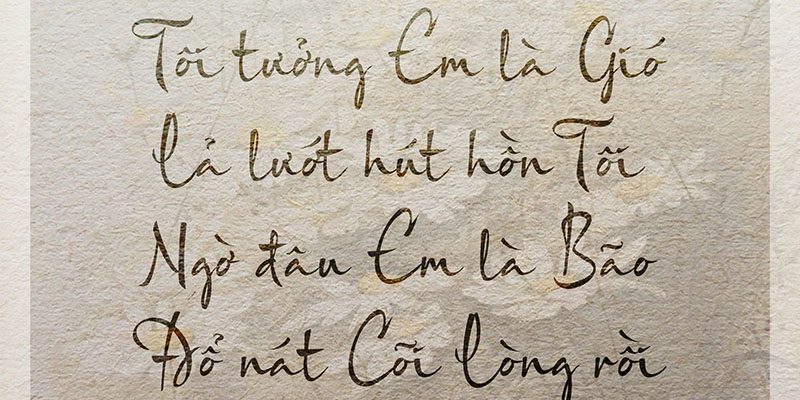 Tôi tưởng Em là Gió
Lả lướt hút hồn Tôi
Ngờ đâu Em là Bão
Đổ nát Cõi lòng rồi